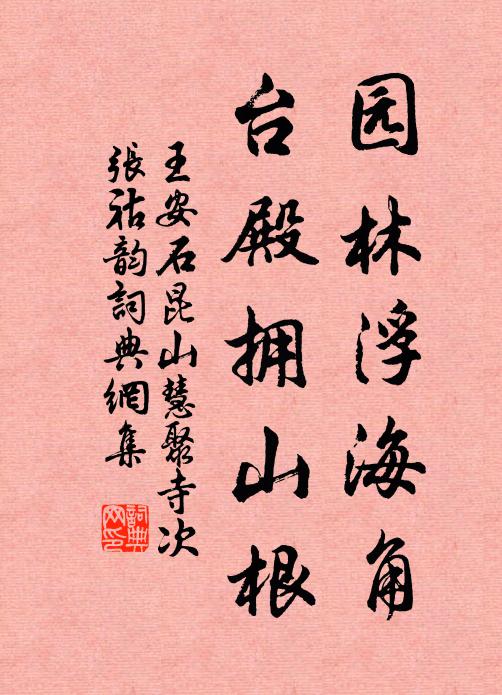 园林浮海角
台殿拥山根
王安石昆山慧聚寺次
張祜韵詞典網集
詞典
网印